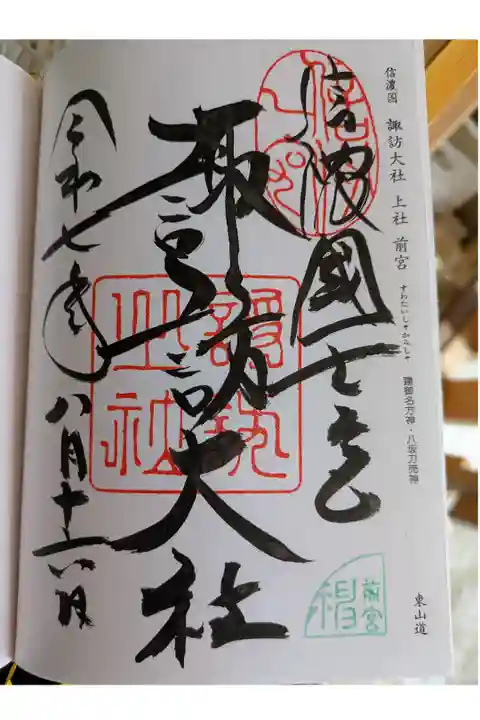 信濃国 諏訪大社 上社 前宮
すわたいしゃかみしゃ
建御名方神・八坂刀売神
東山道
信濃國一之宮
諏訪大社
令和七年八月十六日
前宮